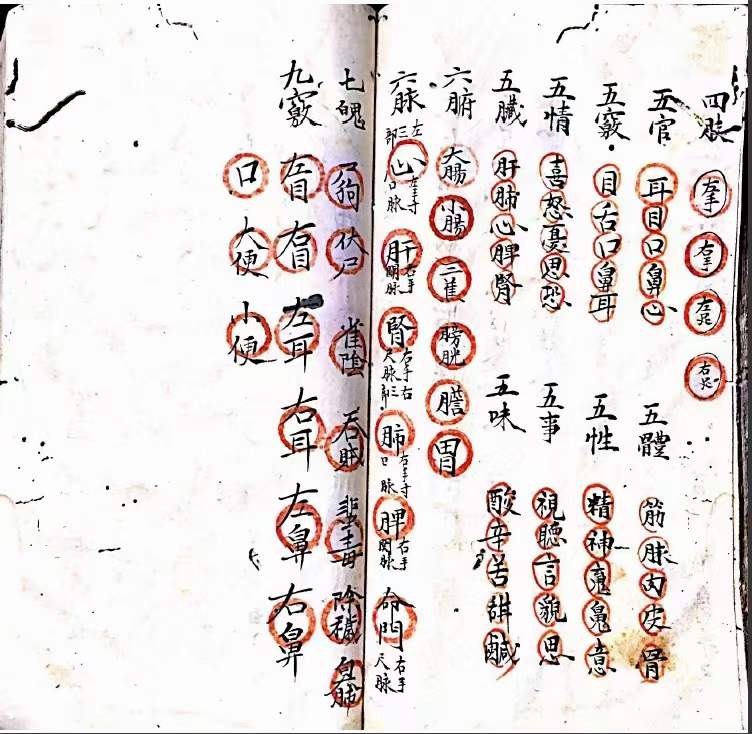 四肢 左手 右手 左足 右足
五官 耳目口鼻心 五體 筋脉肉皮骨
五竅 目舌口鼻耳 五性 精神魂魄意
五情 喜怒憂思恐 五事 視聽言貌思
五臟 肝肺心脾腎 五味 酸辛苦甜鹹
六腑 大腸 小腸 三焦 膀胱 膽 胃
六脉 左三部 心 左手寸口脉 肝 右手關脉 腎 右手尺脉 右三部 肺 右手寸口脉 脾 右手関脉 命門 右手尺脉
七魄 尸狗 伏尸 雀陰 吞賊 蜚毒 除穢 臭肺
九竅 左目 右目 左耳 右耳 左鼻 右鼻
口 大便 小便